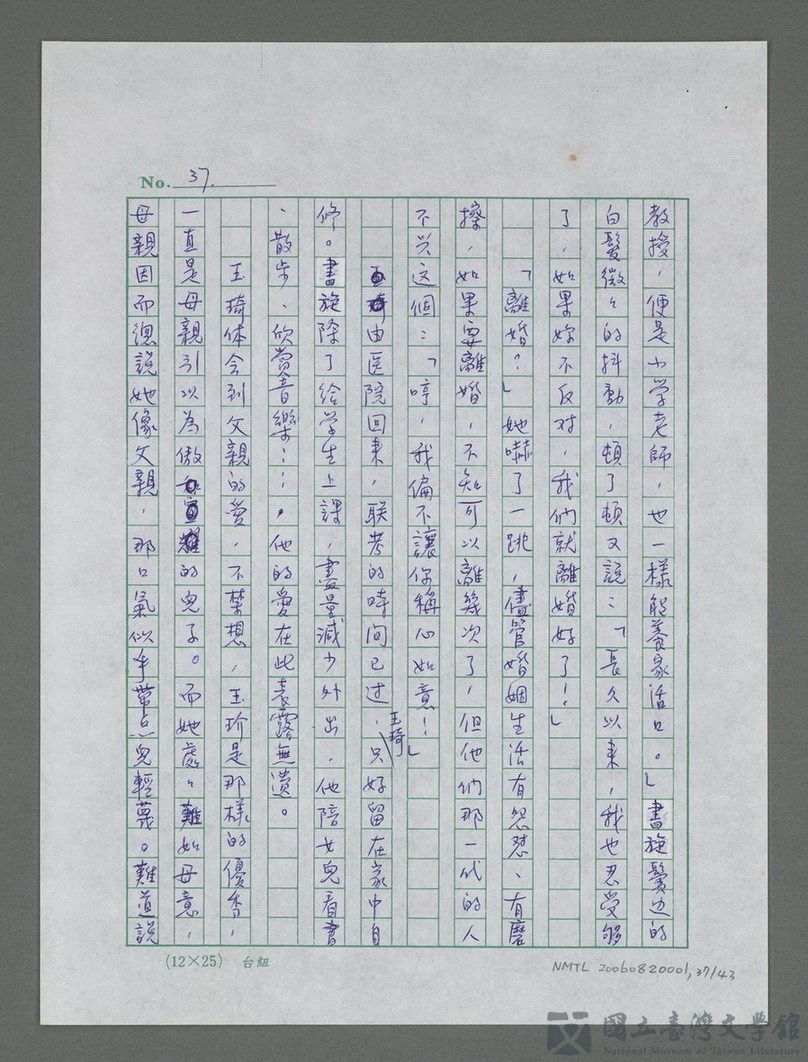 No. 37.
教授，便是小学老師，也一樣能養家活口。」書旋鬢边的
白髮微々的抖動，頓了頓又說：「長久以來，我也忍受够
了，如果妳不反对，我們就離婚好了！」
「離婚？」她嚇了一跳，儘管婚姻生活有怨懟、有磨
擦，如果要離婚，不知可以離幾次了，但他們那一代的人
不兴这個：「哼，我偏不讓你稱心如意！」
由医院回來，联考的時间已过，玉琦只好留在家中自
修。書旋除了给学生上課，盡量減少外出，他陪女兒看書
、散步、欣赏音樂……，他的愛在此表露無遺。
玉琦体会到父親的愛，不禁想，玉玠是那樣的優秀，
一直是母親引以為傲的兒子。而她處々難如母意，
母親因而總說她像父親，那口氣似乎帶点兒輕蔑。難道說
(12×25) 台紐
NMTL 20060820001, 37/43
國立臺灣文學館
National Museum of Taiwan Literature